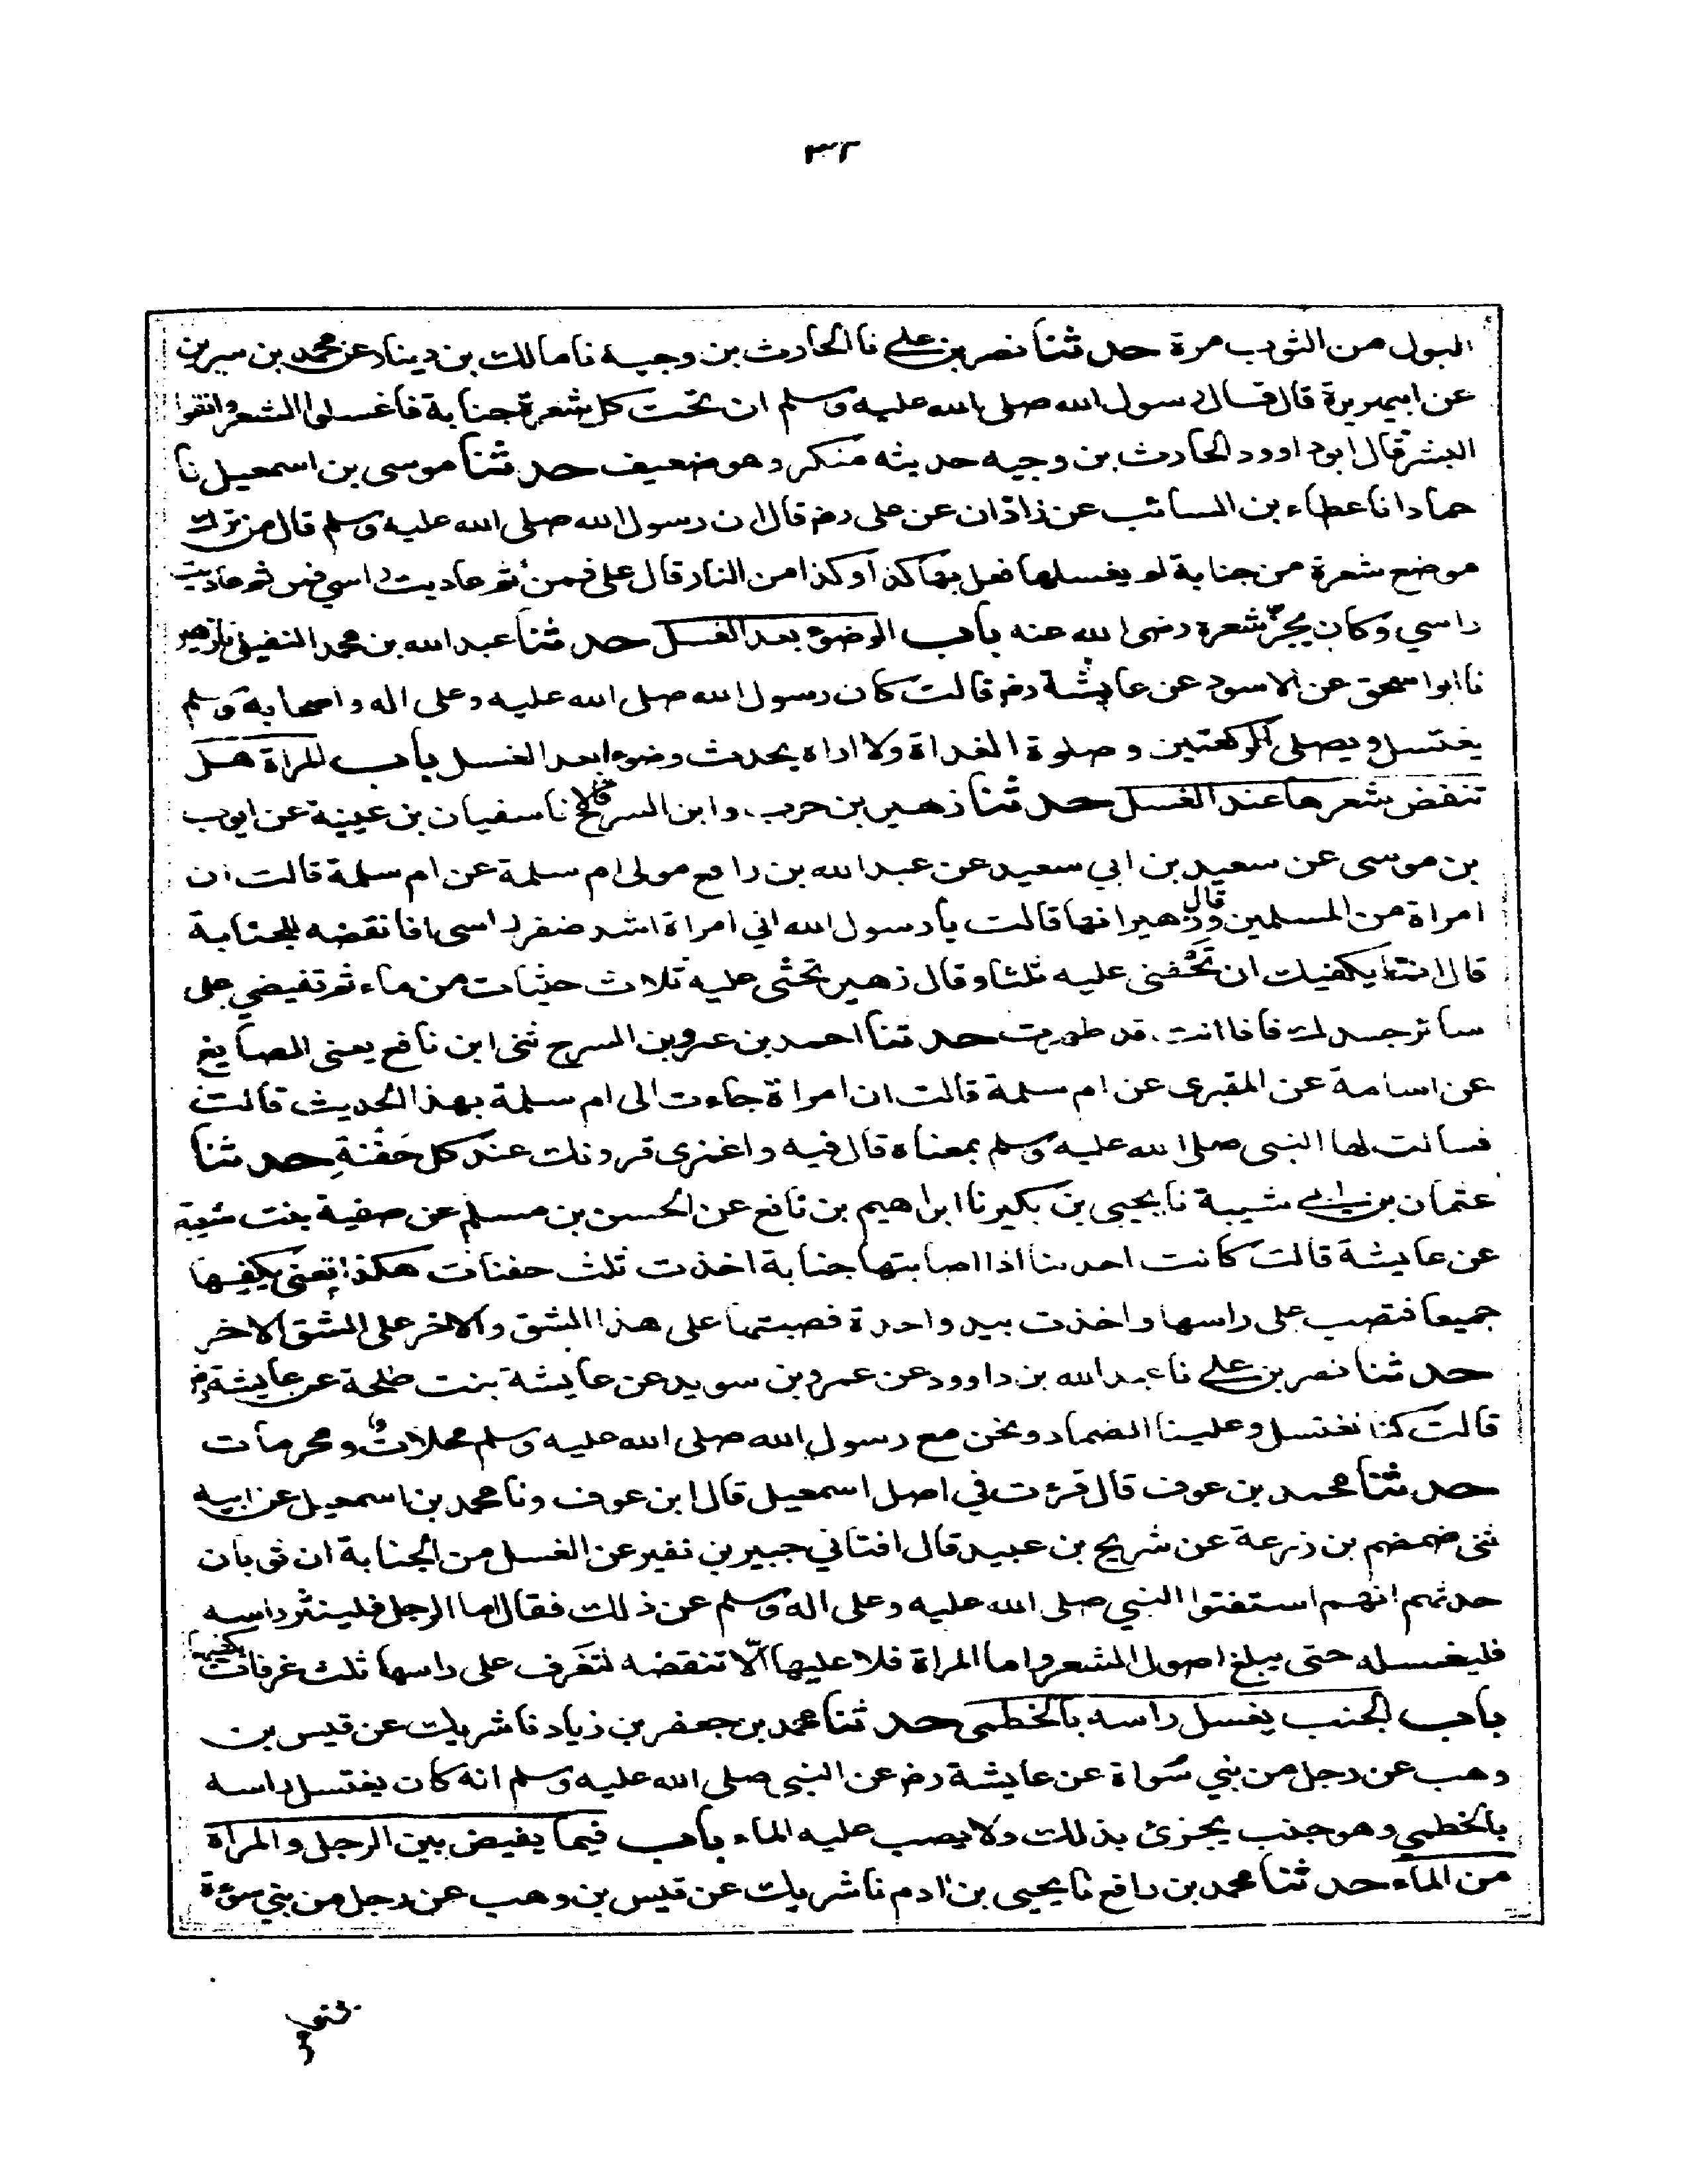 ٣٢
البول من الثوب مرة حدثنا نصر بن علي نا الحارث بن وجيه نا مالك بن دينار عن محمد بن سيرين
عن ابي هريرة قال قال رسول الله صلى الله عليه وسلم ان تحت كل شعرة جنابة فاغسلوا الشعر وانقوا
البشر قال ابو داوود الحارث بن وجيه حديثه منكر وهو ضعيف حدثنا موسى بن اسمعيل نا
حماد انا عطاء بن السائب عن زاذان عن على رضي قال ان رسول الله صلى الله عليه وسلم قال من ترك
موضع شعرة من جنابة لم يغسلها فعل بها كذا وكذا من النار قال على فمن ثم عاديت راسي فمن ثم عاديت
راسي وكان يجزّ شعره رضى الله عنه باب الوضوء بعد الغسل حدثنا عبد الله بن محمد النفيلى نا زهير
نا ابو اسحق عن الاسود عن عايشة رضي قالت كان رسول الله صلى الله عليه وعلى اله واصحابه وسلم
يغتسل ويصلى الركعتين وصلوة الغداة ولا اراه يحدث وضوءا بعد الغسل باب المراة هل
تنقض شعرها عند الغسل حدثنا زهير بن حرب وابن السرح قالا نا سفيان بن عيينة عن ايوب
بن موسى عن سعيد بن ابي سعيد عن عبد الله بن رافع مولى ام سلمة عن ام سلمة قالت ان
امراة من المسلمين وقال زهير انها قالت يا رسول الله اني امراة اشد ضفر راسى افانقضه للجنابة
قال انما يكفيك ان تحفنى عليه ثلثا وقال زهير تحثى عليه ثلاث حثيات من ماء ثم تفيضي على
سائر جسدك فاذا انت قد طهرت حدثنا احمد بن عمرو بن السرح ثنى ابن نافع يعنى الصايغ
عن اسامة عن المقبرى عن ام سلمة قالت ان امراة جاءت الى ام سلمة بهذا الحديث قالت
فسالت لها النبى صلى الله عليه وسلم بمعناه قال فيه واغمزى قرونك عند كل حَفْنةٍ حدثنا
عثمان بن ابي شيبة نا يحيى بن بكير نا ابراهيم بن نافع عن الحسن بن مسلم عن صفية بنت شيبة
عن عايشة قالت كانت احدىنا اذا اصابتها جنابة اخذت ثلث حفنات هكذا تعنى بكفيها
جميعا فتصب على راسها واخذت بيد واحدة فصبتها على هذا الشق والاخر على الشق الاخر
حدثنا نصر بن علي نا عبد الله بن داوود عن عمر بن سويد عن عايشة بنت طلحة عن عايشة رضي
قالت كنا نغتسل وعلينا الضماد ونحن مع رسول الله صلى الله عليه وسلم محلات ومحرمات
حدثنا محمد بن عوف قال قرءت في اصل اسمعيل قال ابن عوف ونا محمد بن اسمعيل عن ابيه
ثنى ضمضم بن زرعة عن شريح بن عبيد قال افتاني جبير بن نفير عن الغسل من الجنابة ان ثوبان
حدثهم انهم استفتوا النبي صلى الله عليه وعلى اله وسلم عن ذلك فقال اما الرجل فلينثر راسه
فليغسله حتى يبلغ اصول الشعر واما المراة فلا عليها الّا تنقضه لتغرف على راسها ثلث غرفات بكفيها
باب الجنب يغسل راسه بالخطمى حدثنا محمد بن جعفر بن زياد نا شريك عن قيس بن
وهب عن رجل من بني سُواة عن عايشة رضي عن النبي صلى الله عليه وسلم انه كان يغتسل راسه
بالخطمي وهو جنب يجزئ بذلك ولا يصب عليه الماء باب فيما يفيض بين الرجل والمراة
من الماء حدثنا محمد بن رافع نا يحيى بن ادم نا شريك عن قيس بن وهب عن رجل من بني سوءة